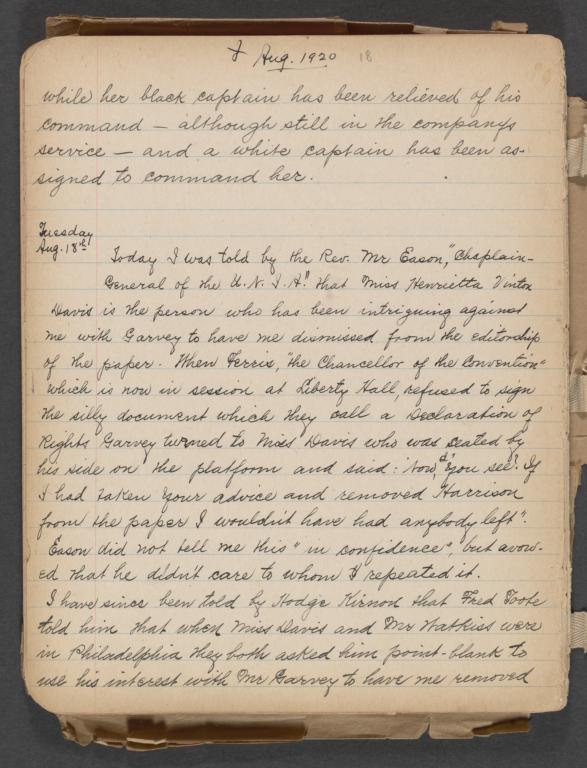 Aug. 1920 18
while her black captain has been relieved of his
command — although still in the company's
service — and a white captain has been as-
signed to command her.
Tuesday
Aug. 18th
Today I was told by the Rev. Mr Eason, "Chaplain-
General of the U.N.I.A." that Miss Henrietta Vinton
Davis is the person who has been intriguing against
me with Garvey to have me dismissed from the editorship
of the paper. When Ferris, "the Chancellor of the Convention"
which is now in session at Liberty Hall, refused to sign
the silly document which they call a Declaration of
Rights Garvey turned to Miss Davis who was seated by
his side on the platform and said: "Now, d'you see? If
I had taken your advice and removed Harrison
from the paper I wouldn't have had anybody left".
Eason did not tell me this "in confidence", but avow-
ed that he didn't care to whom I repeated it.
I have since been told by Hodge Kirnon that Fred Toote
told him that when Miss Davis and Mr Watkiss were
in Philadelphia they both asked him point-blank to
use his interest with Mr Garvey to have me removed